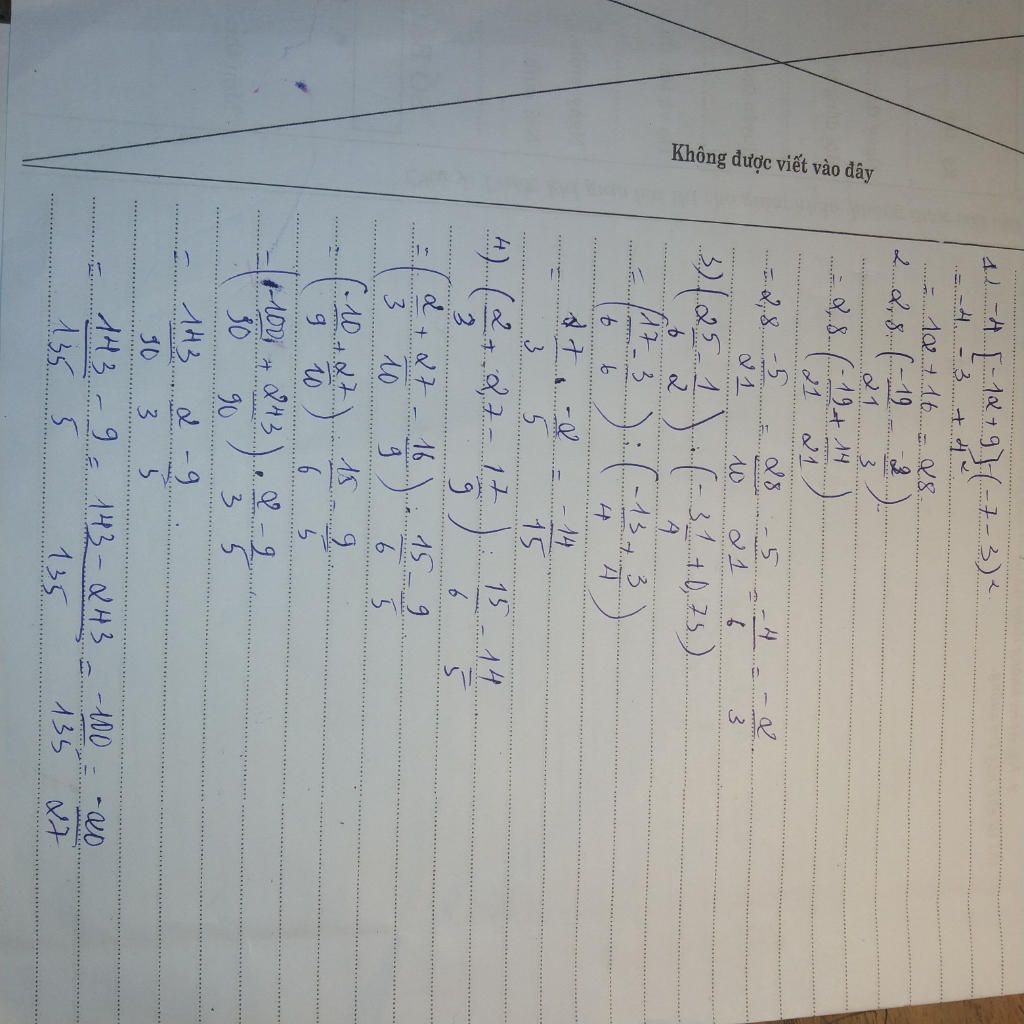 Không được viết vào đây
1) -4 [-12 + 9] - (-7 - 3)²
= -4 . -3 + 4²
= 12 + 16 = 28
2 2,8 (-19/21 - -2/3).
= 2,8 (-19/21 + 14/21)
= 2,8 . -5/21 = 28/10 . -5/21 = -4/6 = -2/3
3) (25/6 - 1/2) : (-3 1/4 + 0,75)
= (17/6 - 3/6) : (-13/4 + 3/4)
= 7/3 . -2/5 = -14/15
4) (2/3 + 2,7 - 17/9) : 15/6 - 14/5
= (2/3 + 27/10 - 16/9) . 15/6 - 9/5
= (-10/9 + 27/10) . 15/6 - 9/5
= (-100/90 + 243/90) . 2/3 - 9/5
= 143/90 . 2/3 - 9/5
= 143/135 - 9/5 = 143 - 243/135 = -100/135 = -20/27